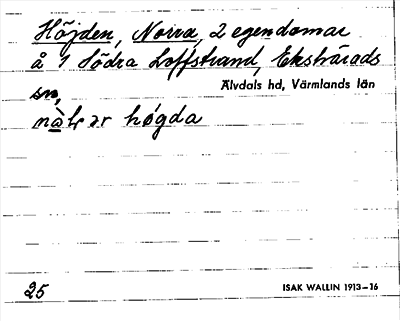 Höjden, Norra, 2 egendomar
å 1 Södra Loffstrand, Ekshärads
sn,
Älvdals hd, Värmlands län
högda
25
ISAK WALLIN 1913–16